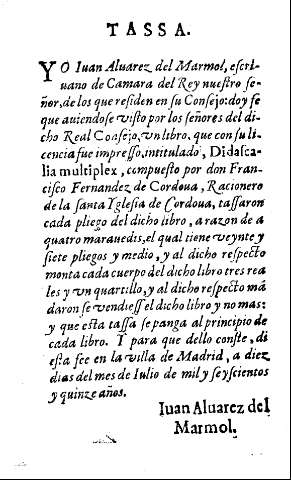 TASSA.
YO Iuan Aluarez del Marmol, escri-
uano de Camara del Rey nuestro se-
ñor, de los que residen en su Consejo: doy fe
que auiendose visto por los señores del di-
cho Real Consejo, vn libro, que con su li-
cencia fue impresso, intitulado, Didasca-
lia multiplex, compuesto por don Fran-
cisco Fernandez de Cordoua, Racionero
de la santa Yglesia de Cordoua, tassaron
cada pliego del dicho libro, a razon de a
quatro marauedis, el qual tiene veynte y
siete pliegos y medio, y al dicho respecto
monta cada cuerpo del dicho libro tres rea
les y vn quartillo, y al dicho respecto mã
daron se vendiesse el dicho libro y no mas:
y que esta tassa se panga al principio de
cada libro. Y para que dello conste, di
esta fee en la villa de Madrid, a diez
dias del mes de Iulio de mil y seyscientos
y quinze años.
Iuan Aluarez del
Marmol.